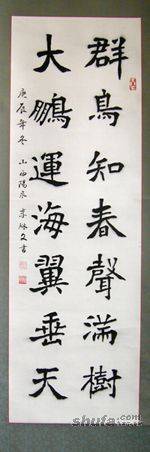 群鳥知春聲滿樹
大鵬運海翼垂天
庚辰年冬 山西陽泉 李
文書
shufa.com